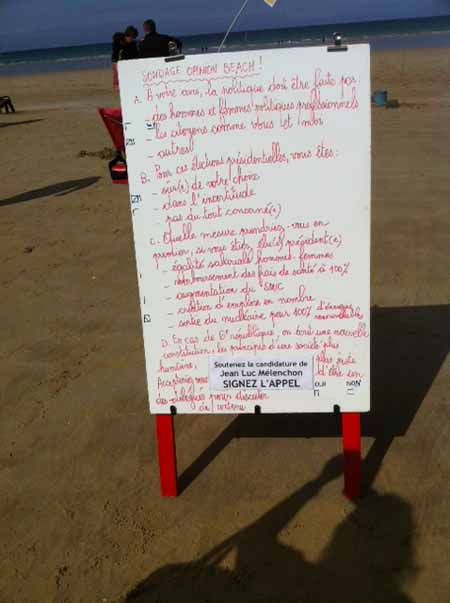 SONDAGE OPINION BEACH !
A. A votre avis, la politique doit être faite par :
- des hommes et femmes politiques professionnels
- les citoyens comme vous et moi
- autres
B. Pour ces élections présidentielles, vous êtes :
- sûr(e) de votre choix
- dans l'incertitude
- pas du tout concerné(e)
C. Quelle mesure prendriez-vous en
premier, si vous étiez élu(e) président(e)
- égalité salariale hommes-femmes
- remboursement des frais de santé à 100%
- augmentation du SMIC
- création d'emplois en nombre
- sortie du nucléaire pour 100% d'énergies renouvelables
D. En cas de 6e république, on écrit une nouvelle
constitution, les principes d'une société plus
humaine, plus juste
Soutenez la candidature de
Jean Luc Mélenchon
SIGNEZ L'APPEL
Accepteriez-vous d'être un
OUI NON
des délégués pour discuter
de